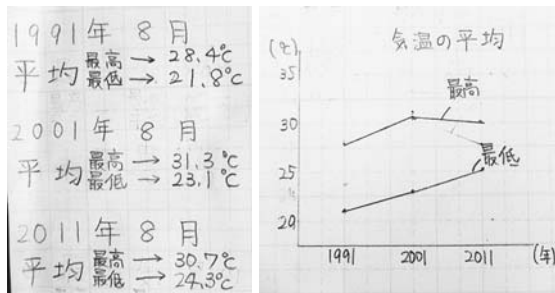 1991年8月
平均最高→28.4℃
最低→21.8℃
2001年8月
平均最高→31.3℃
最低→23.1℃
2011年8月
平均最高→30.7℃
最低→24.3℃
気温の平均
(℃)
35
30
25
20
最高
最低
1991 2001 2011 (年)